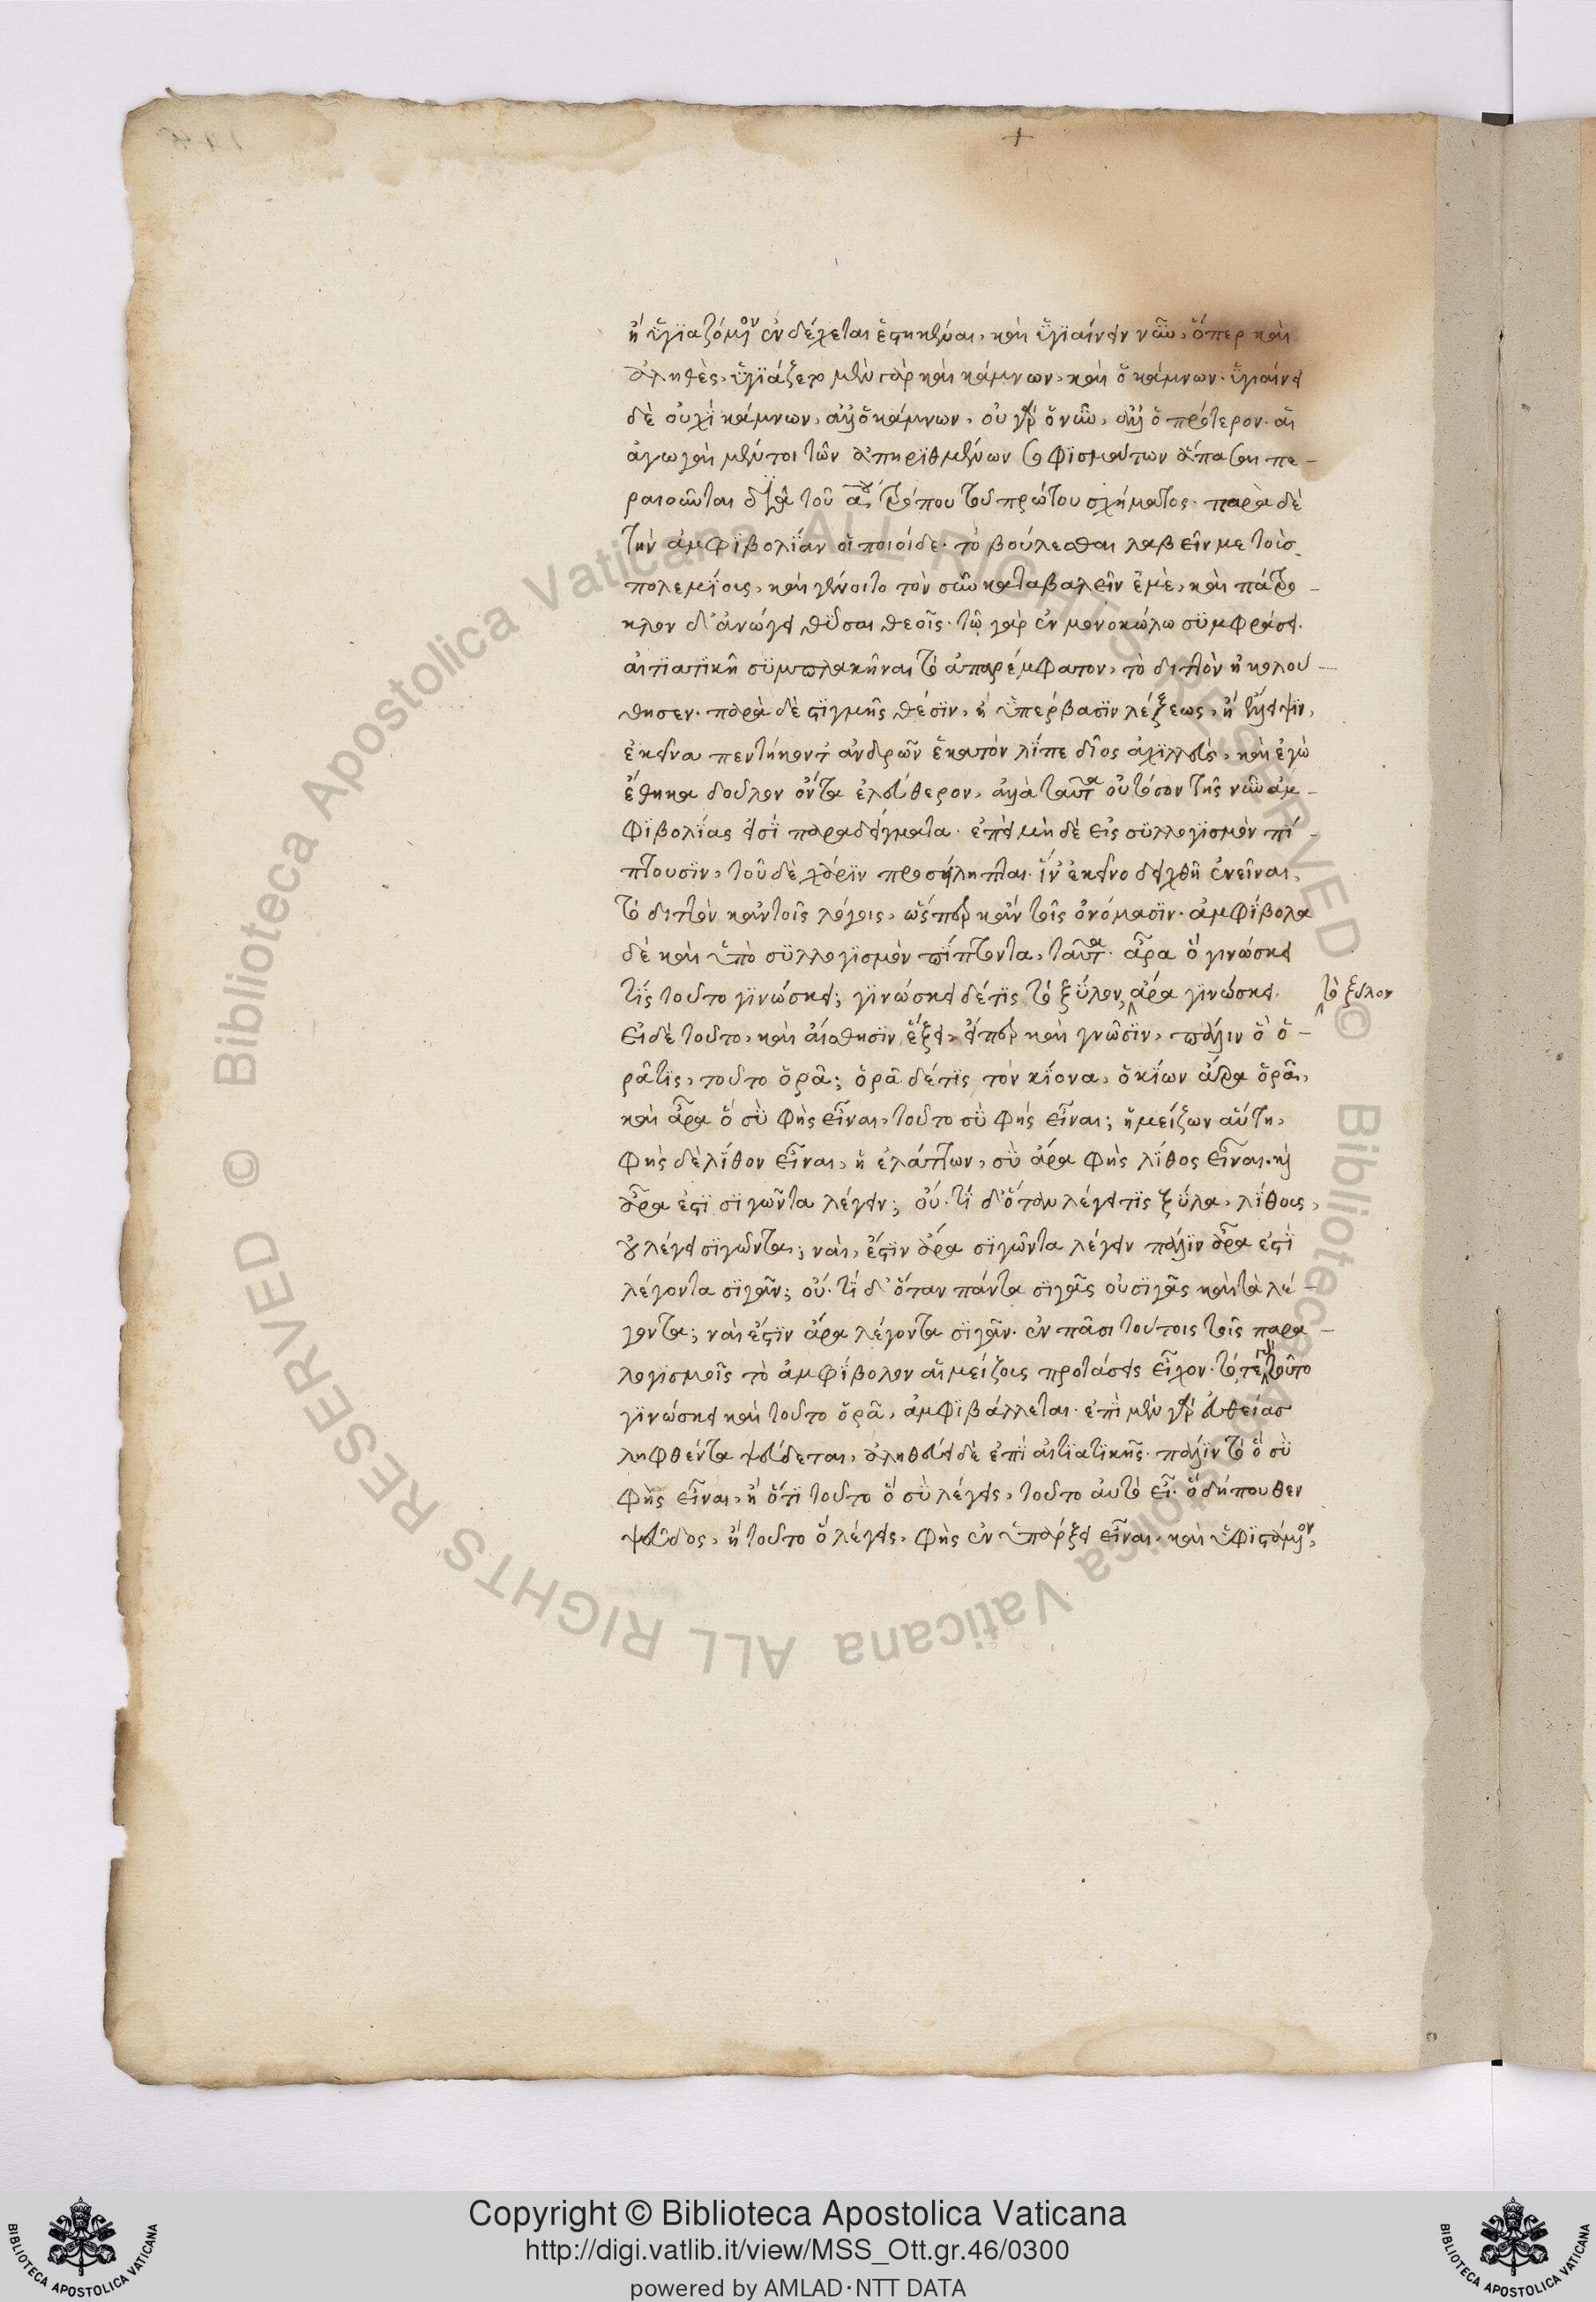 ἢ ὑγιαζόμενον ἐνδέχεται ἑστηκέναι, καὶ ὑγιαίνειν νῦν, ὅπερ καὶ
ἀληθὲς, ὑγιάζετο μὲν γὰρ καὶ κάμνων, καὶ ὁ κάμνων. ὑγιαίνει
δὲ οὐχὶ κάμνων, ἀλλ' ὁ κάμνων, οὐ γὰρ ὁ νῦν, ἀλλ' ὁ πρότερον. αἱ
ἀγωγαὶ μέντοι τῶν ἀπηριθμένων σοφισμάτων ἅπασαι πε-
ραιοῦνται διὰ τοῦ αου τρόπου τοῦ πρώτου σχήματος. παρὰ δὲ
τὴν ἀμφιβολίαν οἱ ποιοίδε. τὸ βούλεσθαι λαβεῖν με τοὺς
πολεμίους, καὶ γένοιτο τὸν σῦν καταβαλεῖν ἐμὲ, καὶ πάτρο-
κλον δ' ἀνώγει θῦσαι θεοῖς. τῷ γὰρ ἐν μονοκώλω συμφράσει.
αἰτιατικῆ συμπλακῆναι τὸ ἀπαρέμφατον, τὸ διπλὸν ἠκολού-
θησεν. παρὰ δὲ στιγμῆς θέσιν, ἢ ὑπέρβασιν λέξεως, ἢ ἔλλειψιν,
ἐκεῖνα πεντήκοντ' ἀνδρῶν ἑκατὸν λίπε δῖος ἀχιλλεὺς, καὶ ἐγὼ
ἔθηκα δοῦλον ὄντα ἐλεύθερον, ἀλλὰ ταῦτα οὐ τόσον τῆς νῦν ἀμ-
φιβολίας εἰσὶ παραδείγματα. ἐπεὶ μὴ δὲ εἰς συλλογισμὸν πί-
πτουσιν, τοῦ δὲ χάριν προσείληπται. ἵν' ἐκεῖνο δειχθῆ ἐνεῖναι,
τὸ διπλὸν κἀν τοῖς λόγοις, ὥσπερ κἀν τοῖς ὀνόμασιν. ἀμφίβολα
δὲ καὶ ὑπὸ συλλογισμὸν πίπτοντα, ταῦτα. ἆρα ὃ γινώσκει
τίς τοῦτο γινώσκει; γινώσκει δέ τις τὸ ξύλον, ἄρα γινώσκει. τὸ ξύλον
εἰ δὲ τοῦτο, καὶ αἴσθησιν ἕξει, εἴπερ καὶ γνῶσιν, πάλιν ὃ ὁ-
ρᾶ τις, τοῦτο ὁρᾶ; ὁρᾶ δέ τις τὸν κίονα, ὁ κίων ἄρα ὁρᾶ,
καὶ ἆρα ὃ σὺ φὴς εἶναι, τοῦτο σὺ φὴς εἶναι; ἡ μείζων αὕτη,
φὴς δὲ λίθον εἶναι, ἡ ἐλάττων, σὺ ἄρα φὴς λίθος εἶναι. καὶ
ἆρα ἐστὶ σιγῶντα λέγειν; οὔ. τί δ' ὅταν λέγει τις ξύλα, λίθους,
οὐ λέγει σιγῶντα; ναὶ, ἔστιν ἄρα σιγῶντα λέγειν πάλιν ἆρα ἐστὶ
λέγοντα σιγᾶν; οὔ. τί δ' ὅταν πάντα σιγᾶς οὐ σιγᾶς καὶ τὰ λέ-
γοντα; ναὶ ἔστιν ἄρα λέγοντα σιγᾶν. ἐν πᾶσι τούτοις τοῖς παρα-
λογισμοῖς τὸ ἀμφίβολον αἱ μείζους προτάσεις εἶχον. τό, τε γὰρ τοῦτο
γινώσκει καὶ τοῦτο ὁρᾶ, ἀμφιβάλλεται. ἐπὶ μὲν γὰρ εὐθείας
ληφθέντα ψεύδεται, ἀληθεύει δὲ ἐπὶ αἰτιατικῆς. πάλιν τὸ ὃ σὺ
φὴς εἶναι, ἢ ὅτι τοῦτο ὃ σὺ λέγεις, τοῦτο αὐτὸ εἶ. ὃ δήπουθεν
ψεῦδος, ἢ τοῦτο ὃ λέγεις, φὴς ἐν ὑπάρξει εἶναι, καὶ ὑφιστάμενον,
Copyright © Biblioteca Apostolica Vaticana
http://digi.vatlib.it/view/MSS_Ott.gr.46/0300
powered by AMLAD·NTT DATA